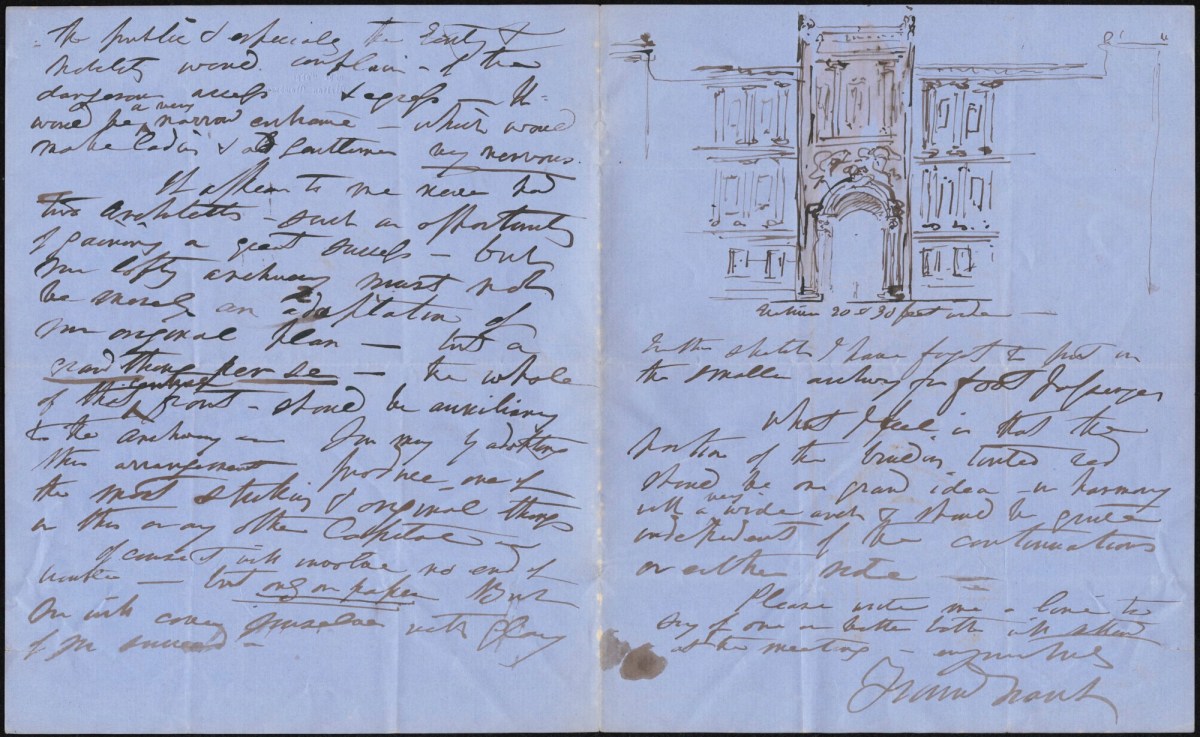 the public & especially the Gentry &
nobility would complain – of the
dangerous access & egress It
would be a very narrow entrance – which would
make Ladies & Gentlemen very nervous.
It appears to me never had
two Architects – such an opportunity
of gaining a great success – but
our lofty archway must not
be merely an adaptation of
our original plan – but a
grand thing per se – the whole
of that central front – should be auxiliary
to the archway – you may by adopting
this arrangement produce one of
the most striking & original things
in this or any other Capital –
of course it will involve no end of
trouble – but only on paper But
you will cover yourselves with Glory
if you succeed –
Entrance 20 & 30 feet wide –
In the sketch I have forgot to put in
the smaller archway for foot passengers
What I feel is that the
portion of the building tinted red
should be one grand idea – in harmony
with a very wide arch & should be quite
independent of the continuations
on either side –
Please write me a line to
say if one or better both will attend
at the meeting –
Grant